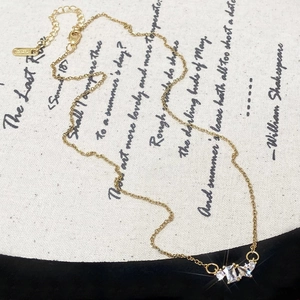 The Last R
"Sonnet 18"
Shall I compare thee
to a summer's day?
Thou art more lovely and more temperate:
Rough winds do shake
the darling buds of May,
And summer's lease hath all too short a date;
—William Shakespeare